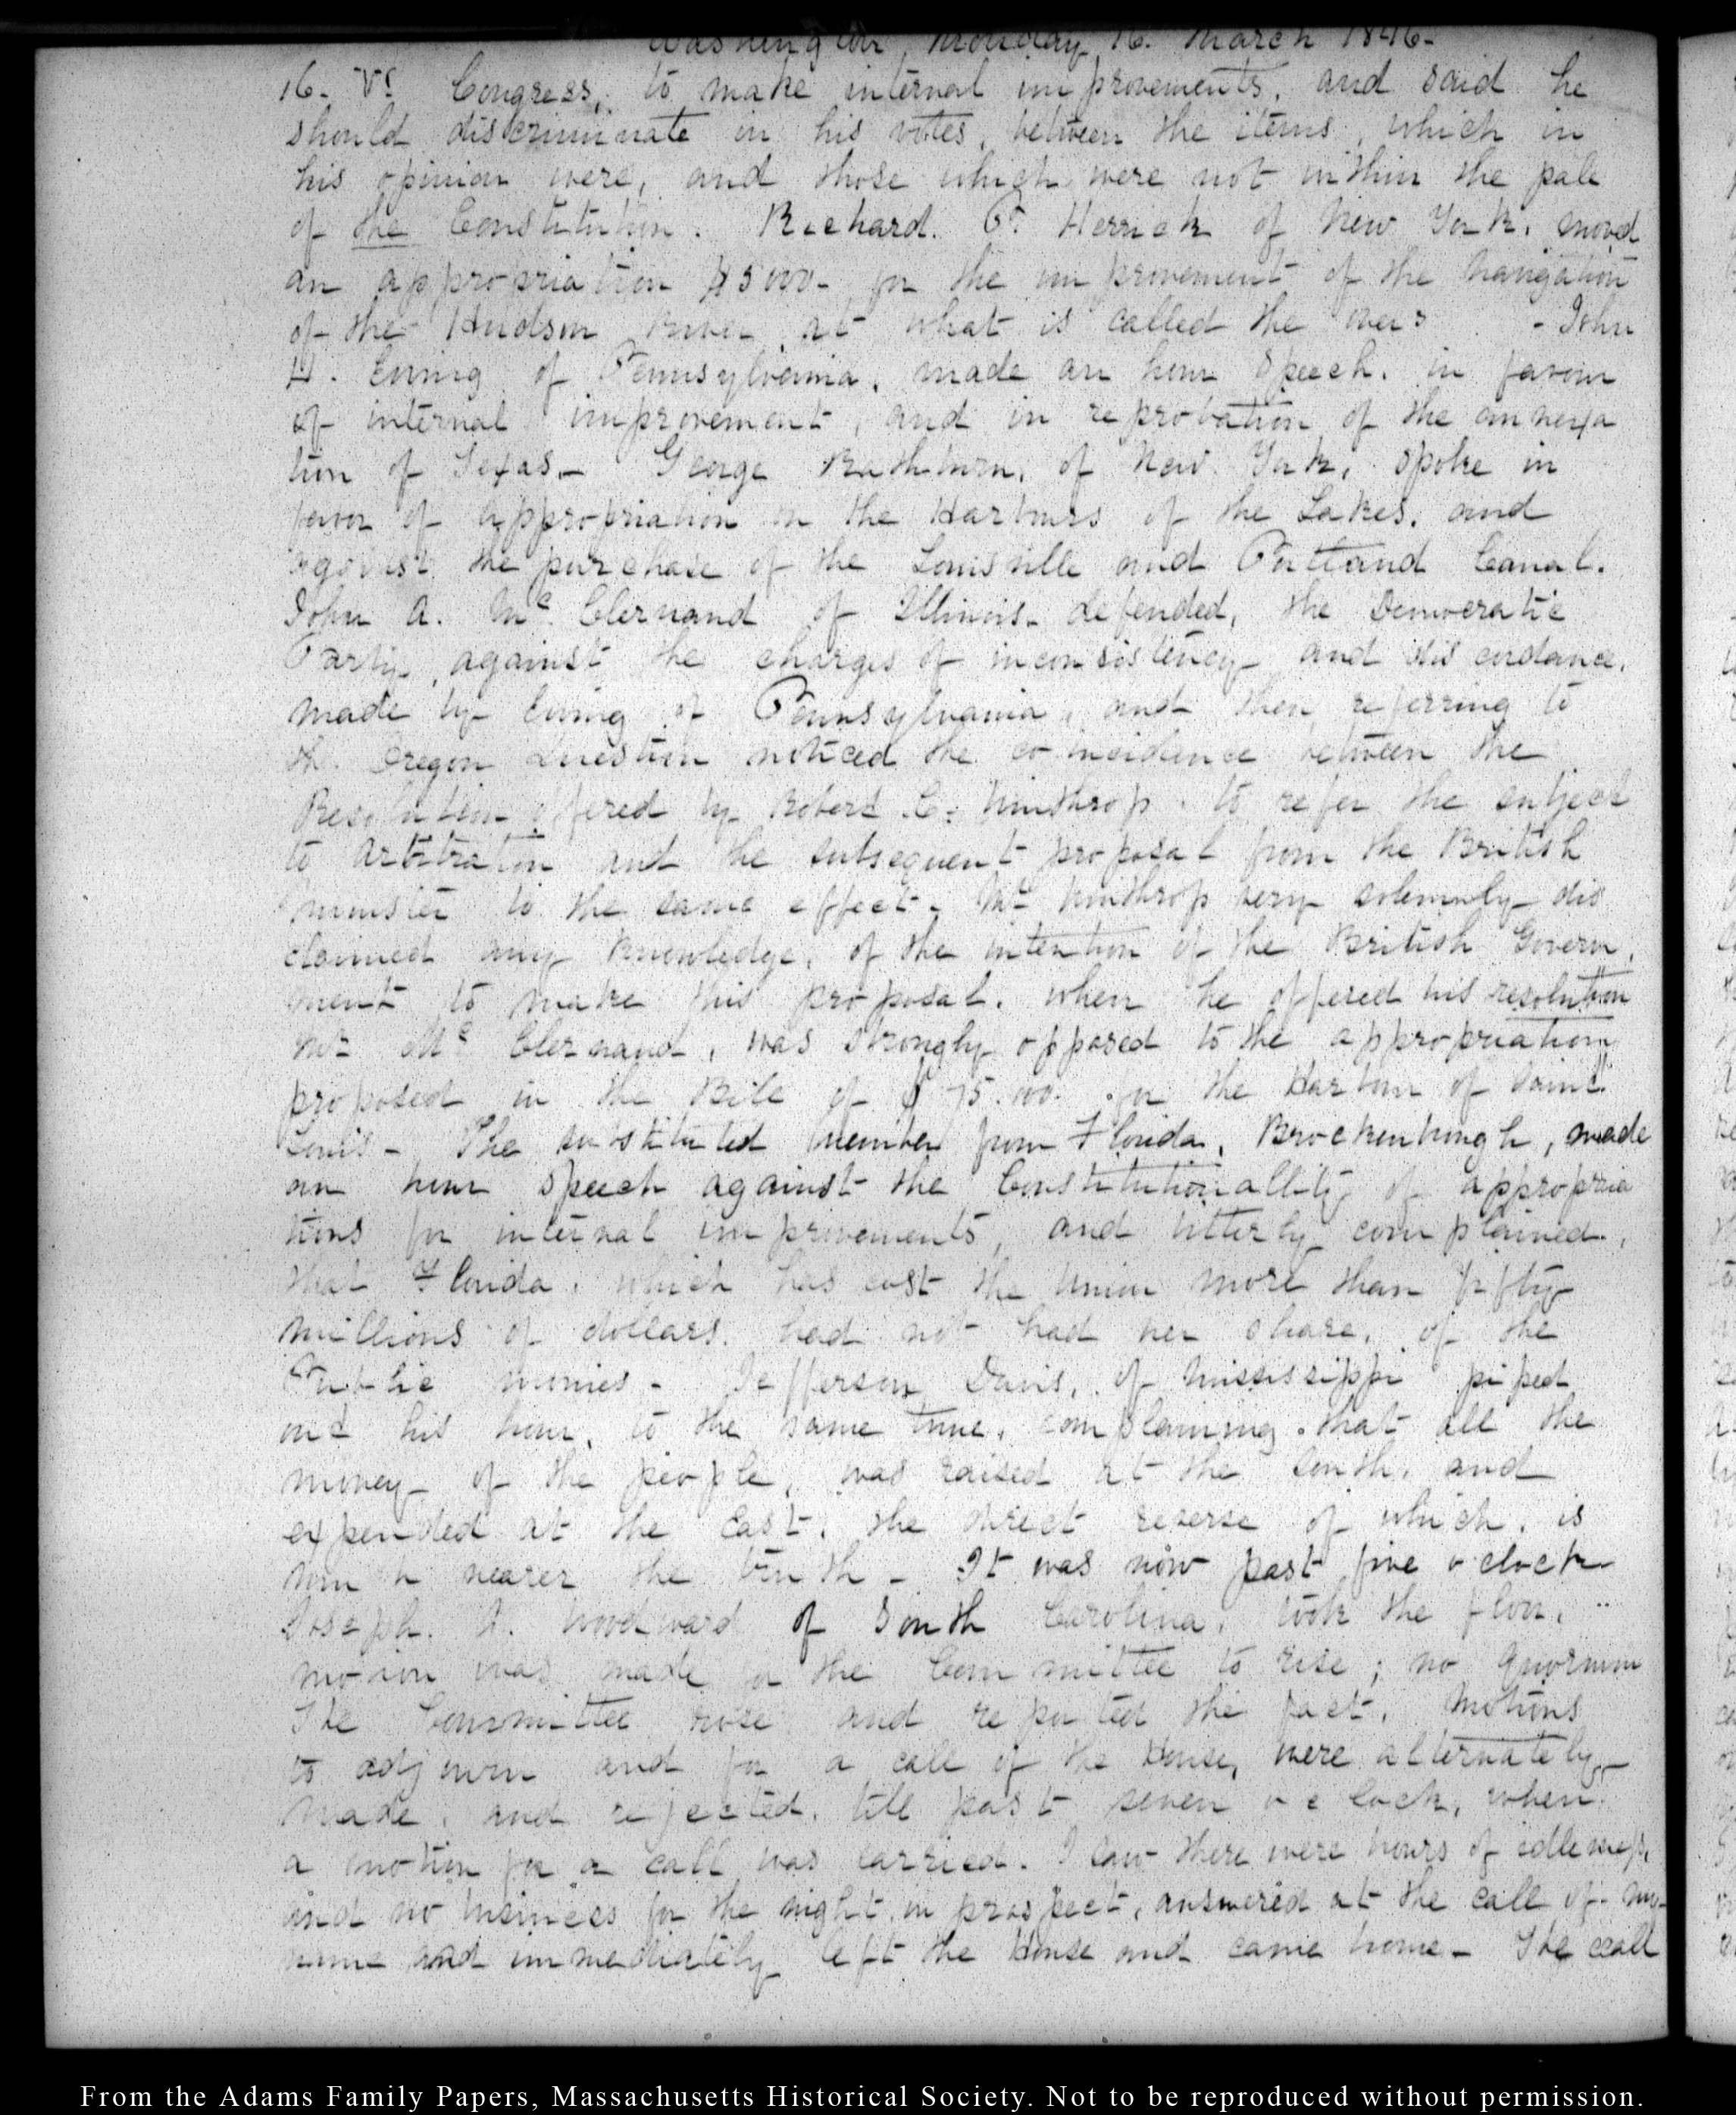 Washington, Monday 16. March 1846-
16. V.. Congress, to make internal improvements, and said he
should discriminate in his votes, between the items, which in
his opinion were, and those which were not within the pale
of the Constitution. Richard. P. Herrick of New York, moved
an appropriation for the improvement of the Navigation
of the Hudson River at what is called the - John
H. Ewing of Pennsylvania, made an hour Speech, in favour
of internal improvement, and in reprobation of the annexa
tion of Texas.- George Rathburn, of New York, spoke in
favor of appropriation on the Harbours of the Lakes, and
against the purchase of the Louisville and Portland Canal.
John A. Mc Clernand of Illinois- defended, the Democratic
Party, against the charges of inconsistency and discordance,
made by Ewing of Pennsylvania, and then referring to
the Oregon Question noticed the coincidence between the
Resolution offered by Robert C. Winthrop to refer the subject
to arbitration and the subsequent proposal from the British
minister to the same effect. Mr Winthrop very solemnly dis
claimed any knowledge, of the intention of the British Govern,
ment to make this proposal, when he offered his resolution
Mr Mc Clernand, was strongly opposed to the appropriation
proposed in the Bill of $ 75.000. for the Harbour of Saint
Louis- The substituted member from Florida, Brockenbrough, made
an hour Speech against the Constitutionallity of appropria
tions for internal improvements, and bitterly complained,
that Florida, which has cost the Union more than fifty
millions of dollars, had not had her share, of the
Public monies- Jefferson Davis, of Mississippi piped
out his hour, to the same tune, complaining that all the
money of the people, was raised at the South, and
expended at the East, the direct reverse of which, is
much nearer the truth- It was now past five o clock
Joseph. A. Woodward of South Carolina, took the floor,
motion was made for the Committee to rise; no quorum
The Committee rose and reported the fact, Motions
to adjourn and for a call of the House, were alternately
made, and rejected, till past seven o clock, when
a motion for a call was carried. I saw there were hours of idleness,
and no business for the night in prospect, answered at the call of my
name and immediately left the House and came home- The call
From the Adams Family Papers, Massachusetts Historical Society. Not to be reproduced without permission.